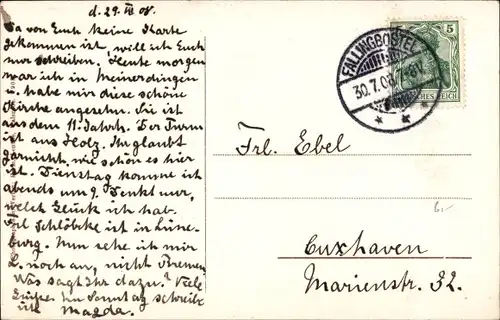 d. 29. VII 08.
Da von Euch keine Karte
gekommen ist, will ich Euch
nur schreiben. Heute morgen
war ich in Meinerdingen
u. habe mir diese schöne
Kirche angesehn. Sie ist
aus dem 11. Jahrh. Der Turm
ist aus Holz. Ihr glaubt
garnicht, wie schön es hier
ist. Dienstag komme ich
abends um 9. Denkt nur,
welch Glück ich hab.
Frl Schlöbcke ist in Lüne-
burg. Nun sehe ich mir
L. noch an, nicht Bremen.
Was sagt Ihr dazu? Viele
Grüsse. Im Sonntag schreibe
Magda.
FALLINGBOSTEL
30.7.08. 7-8V.
5
DEUTSCHES REICH
Frl. Ebel
Cuxhaven
Marienstr. 32.